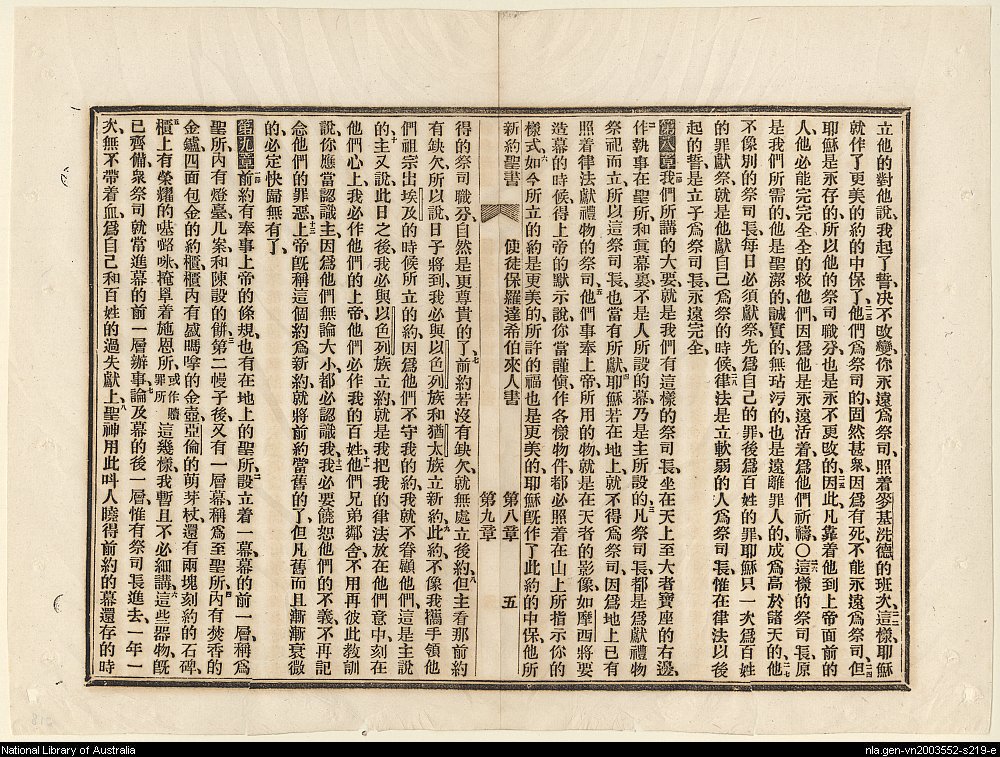 立他的對他說、我起了誓、决不改變、你永遠爲祭司、照着麥基洗德的班次、二二這樣、耶穌
就作了更美的約的中保了、二三他們爲祭司的、固然甚衆、因爲有死、不能永遠爲祭司、二四但
耶穌是永存的、所以他的祭司職分、也是永不更改的、二五因此凡靠着他到上帝面前的
人、他必能完完全全的救他們、因爲他是永遠活着、爲他們祈禱○二六這樣的祭司長、原
是我們所需的、他是聖潔的、誠實的、無玷污的、也是遠離罪人的、成爲高於諸天的、二七他
不像別的祭司長、每日必須獻祭、先爲自己的罪、後爲百姓的罪、耶穌只一次爲百姓
的罪獻祭、就是他獻自己爲祭的時候、二八律法是立軟弱的人爲祭司長、惟在律法以後
起的誓、是立子爲祭司長、永遠完全、
第八章一節我們所講的大要、就是我們有這樣的祭司長、坐在天上至大者寶座的右邊、
二作執事在聖所、和眞幕裏、不是人所設的幕、乃是主所設的、三凡祭司長、都是爲獻禮物
祭祀而立、所以這祭司長、也當有所獻、四耶穌若在地上、就不得爲祭司、因爲地上已有
照着律法獻禮物的祭司、五他們事奉上帝所用的物、就是在天者的影像、如摩西將要
造幕的時候、得上帝的默示說、你當謹愼作各樣物件、都必照着在山上所指示你的
樣式、六如今所立的約、是更美的、所許的福、也是更美的、耶穌既作了此約的中保、他所
新約聖書 使徒保羅達希伯來人書 第八章 第九章 五
得的祭司職分、自然是更尊貴的了、七前約若沒有缺欠、就無處立後約、八但主看那前約
有缺欠、所以說、日子將到、我必與以色列族和猶太族立新約、九此約不像我攜手領他
們祖宗出埃及的時候所立的約、因爲他們不守我的約、我就不眷顧他們、這是主說
的、十主又說、此日之後、我必與以色列族立約、就是我把我的律法放在他們意中、刻在
他們心上、我必作他們的上帝、他們必作我的百姓、十一他們兄弟鄰舍、不用再彼此敎訓
說、你應當認識主、因爲他們無論大小、都必認識我、十二我必要饒恕他們的不義、不再記
念他們的罪惡、十三上帝既稱這個約爲新約、就將前約當舊的了、但凡舊而且漸漸衰微
的、必定快歸無有了、
第九章一節前約有奉事上帝的條規、也有在地上的聖所、二設立着一幕、幕的前一層稱爲
聖所、內有燈臺、几案、和陳設的餅、三第二幔子後、又有一層幕、稱爲至聖所、四內有焚香的
金鑪、四面包金的約櫃、櫃內有盛嗎嗱的金壺、亞倫的萌芽杖、還有兩塊刻約的石碑、
五櫃上有榮耀的𠼻𡀔咏、掩罩着施恩所、或作贖罪所這幾樣、我暫且不必細講、六這些器物既
已齊備、衆祭司就當進幕的前一層辦事、七論及幕的後一層、惟有祭司長進去、一年一
次、無不帶着血、爲自己和百姓的過失獻上、八聖神用此叫人曉得前約的幕還存的時
National Library of Australia
nla.gen-vn2003552-s219-e